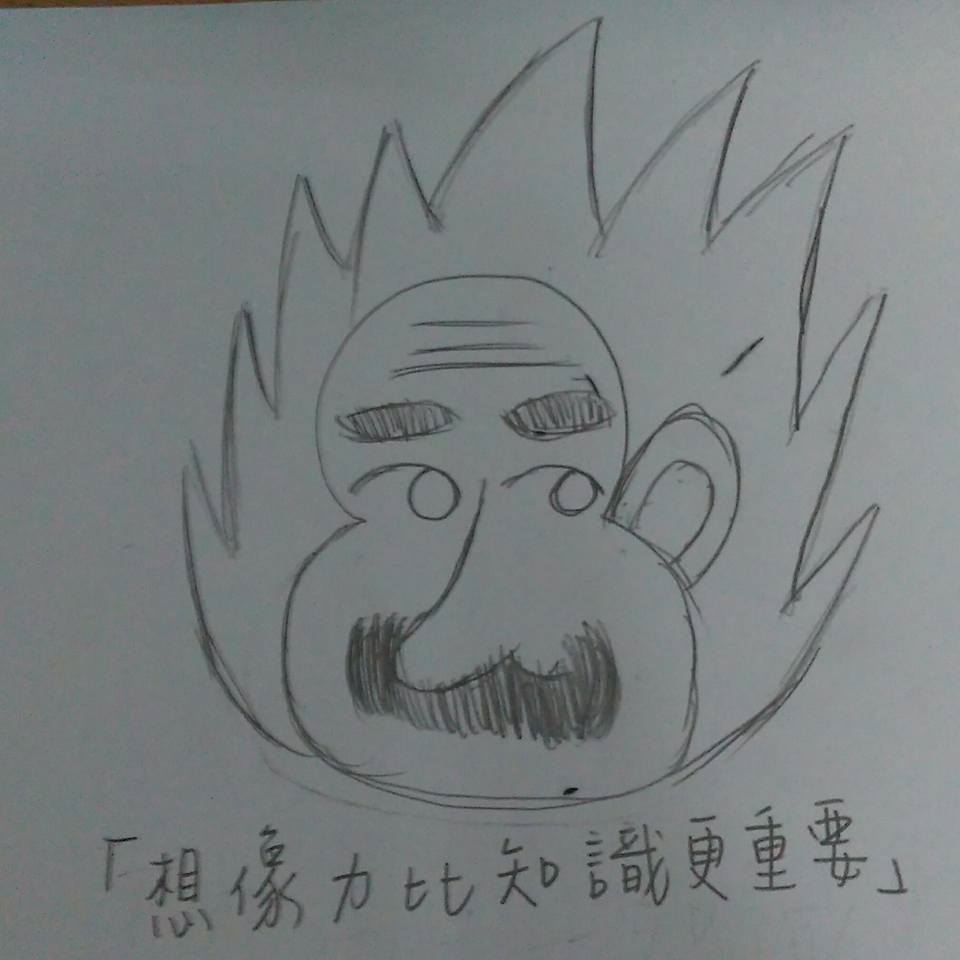 「想像力比知識更重要」